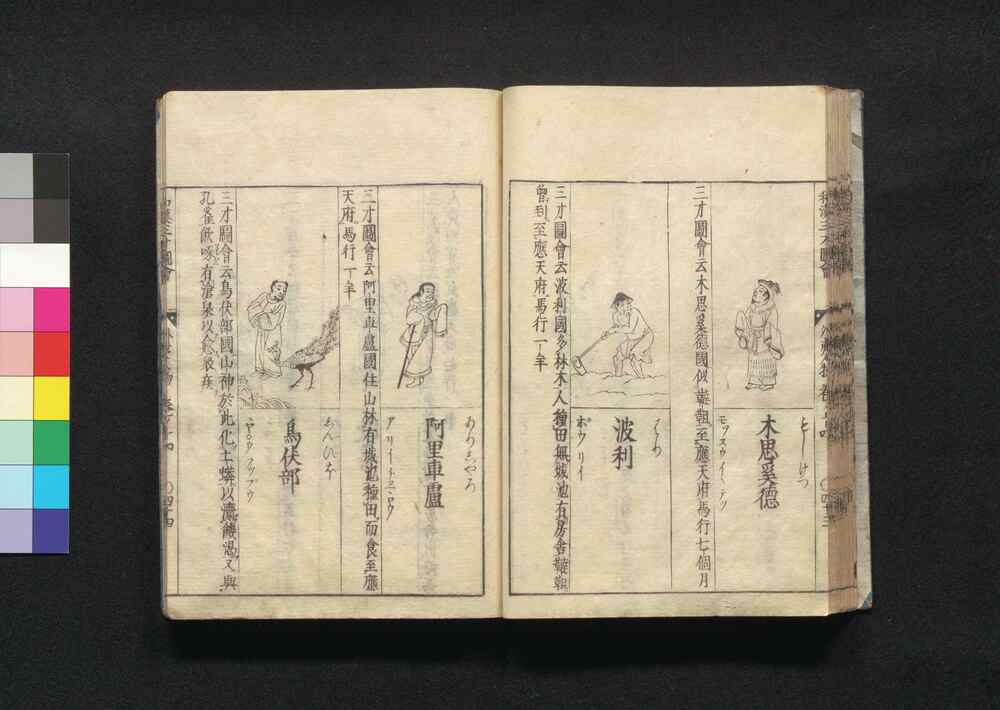 もくしけつ
木思奚德
モツスウイヽテツ
三才圖會云木思奚德國似韃靼至應天府馬行七個月
はり
波利
ポウリイ
三才圖會云波利國多林木人種田無城池有房舍韃靼
曾到至應天府馬行一年
ありしやろ
阿里車盧
アリイ
三才圖會云阿里車盧國住山林有城池種田而食至應
天府馬行一年
烏伏部
三才圖會云烏伏部國山神於此化土以濟饑渴又與
孔雀飲啄有